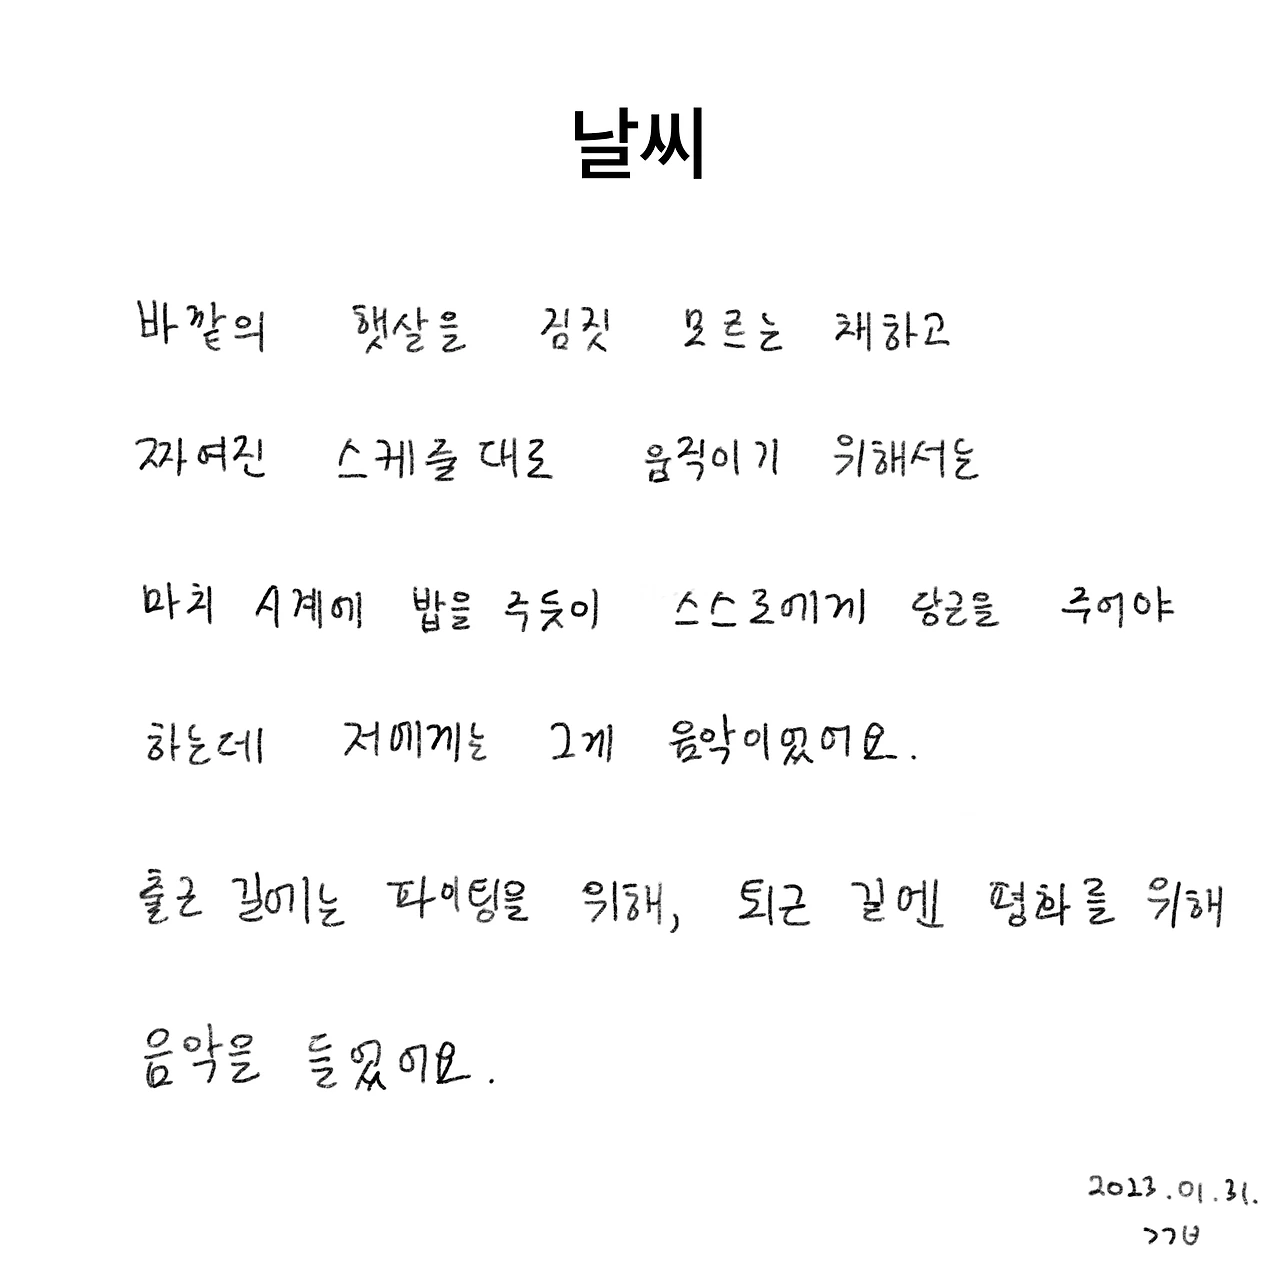 날씨
바깥의 햇살을 짐짓 모르는 채하고
짜여진 스케줄대로 움직이기 위해서는
마치 시계에 밥을 주듯이 스스로에게 당근을 주어야
하는데 저에게는 그게 음악이었어요.
출근 길에는 파이팅을 위해, 퇴근 길엔 평화를 위해
음악을 들었어요.
2023.01.31.
ㄱㄱㅂ